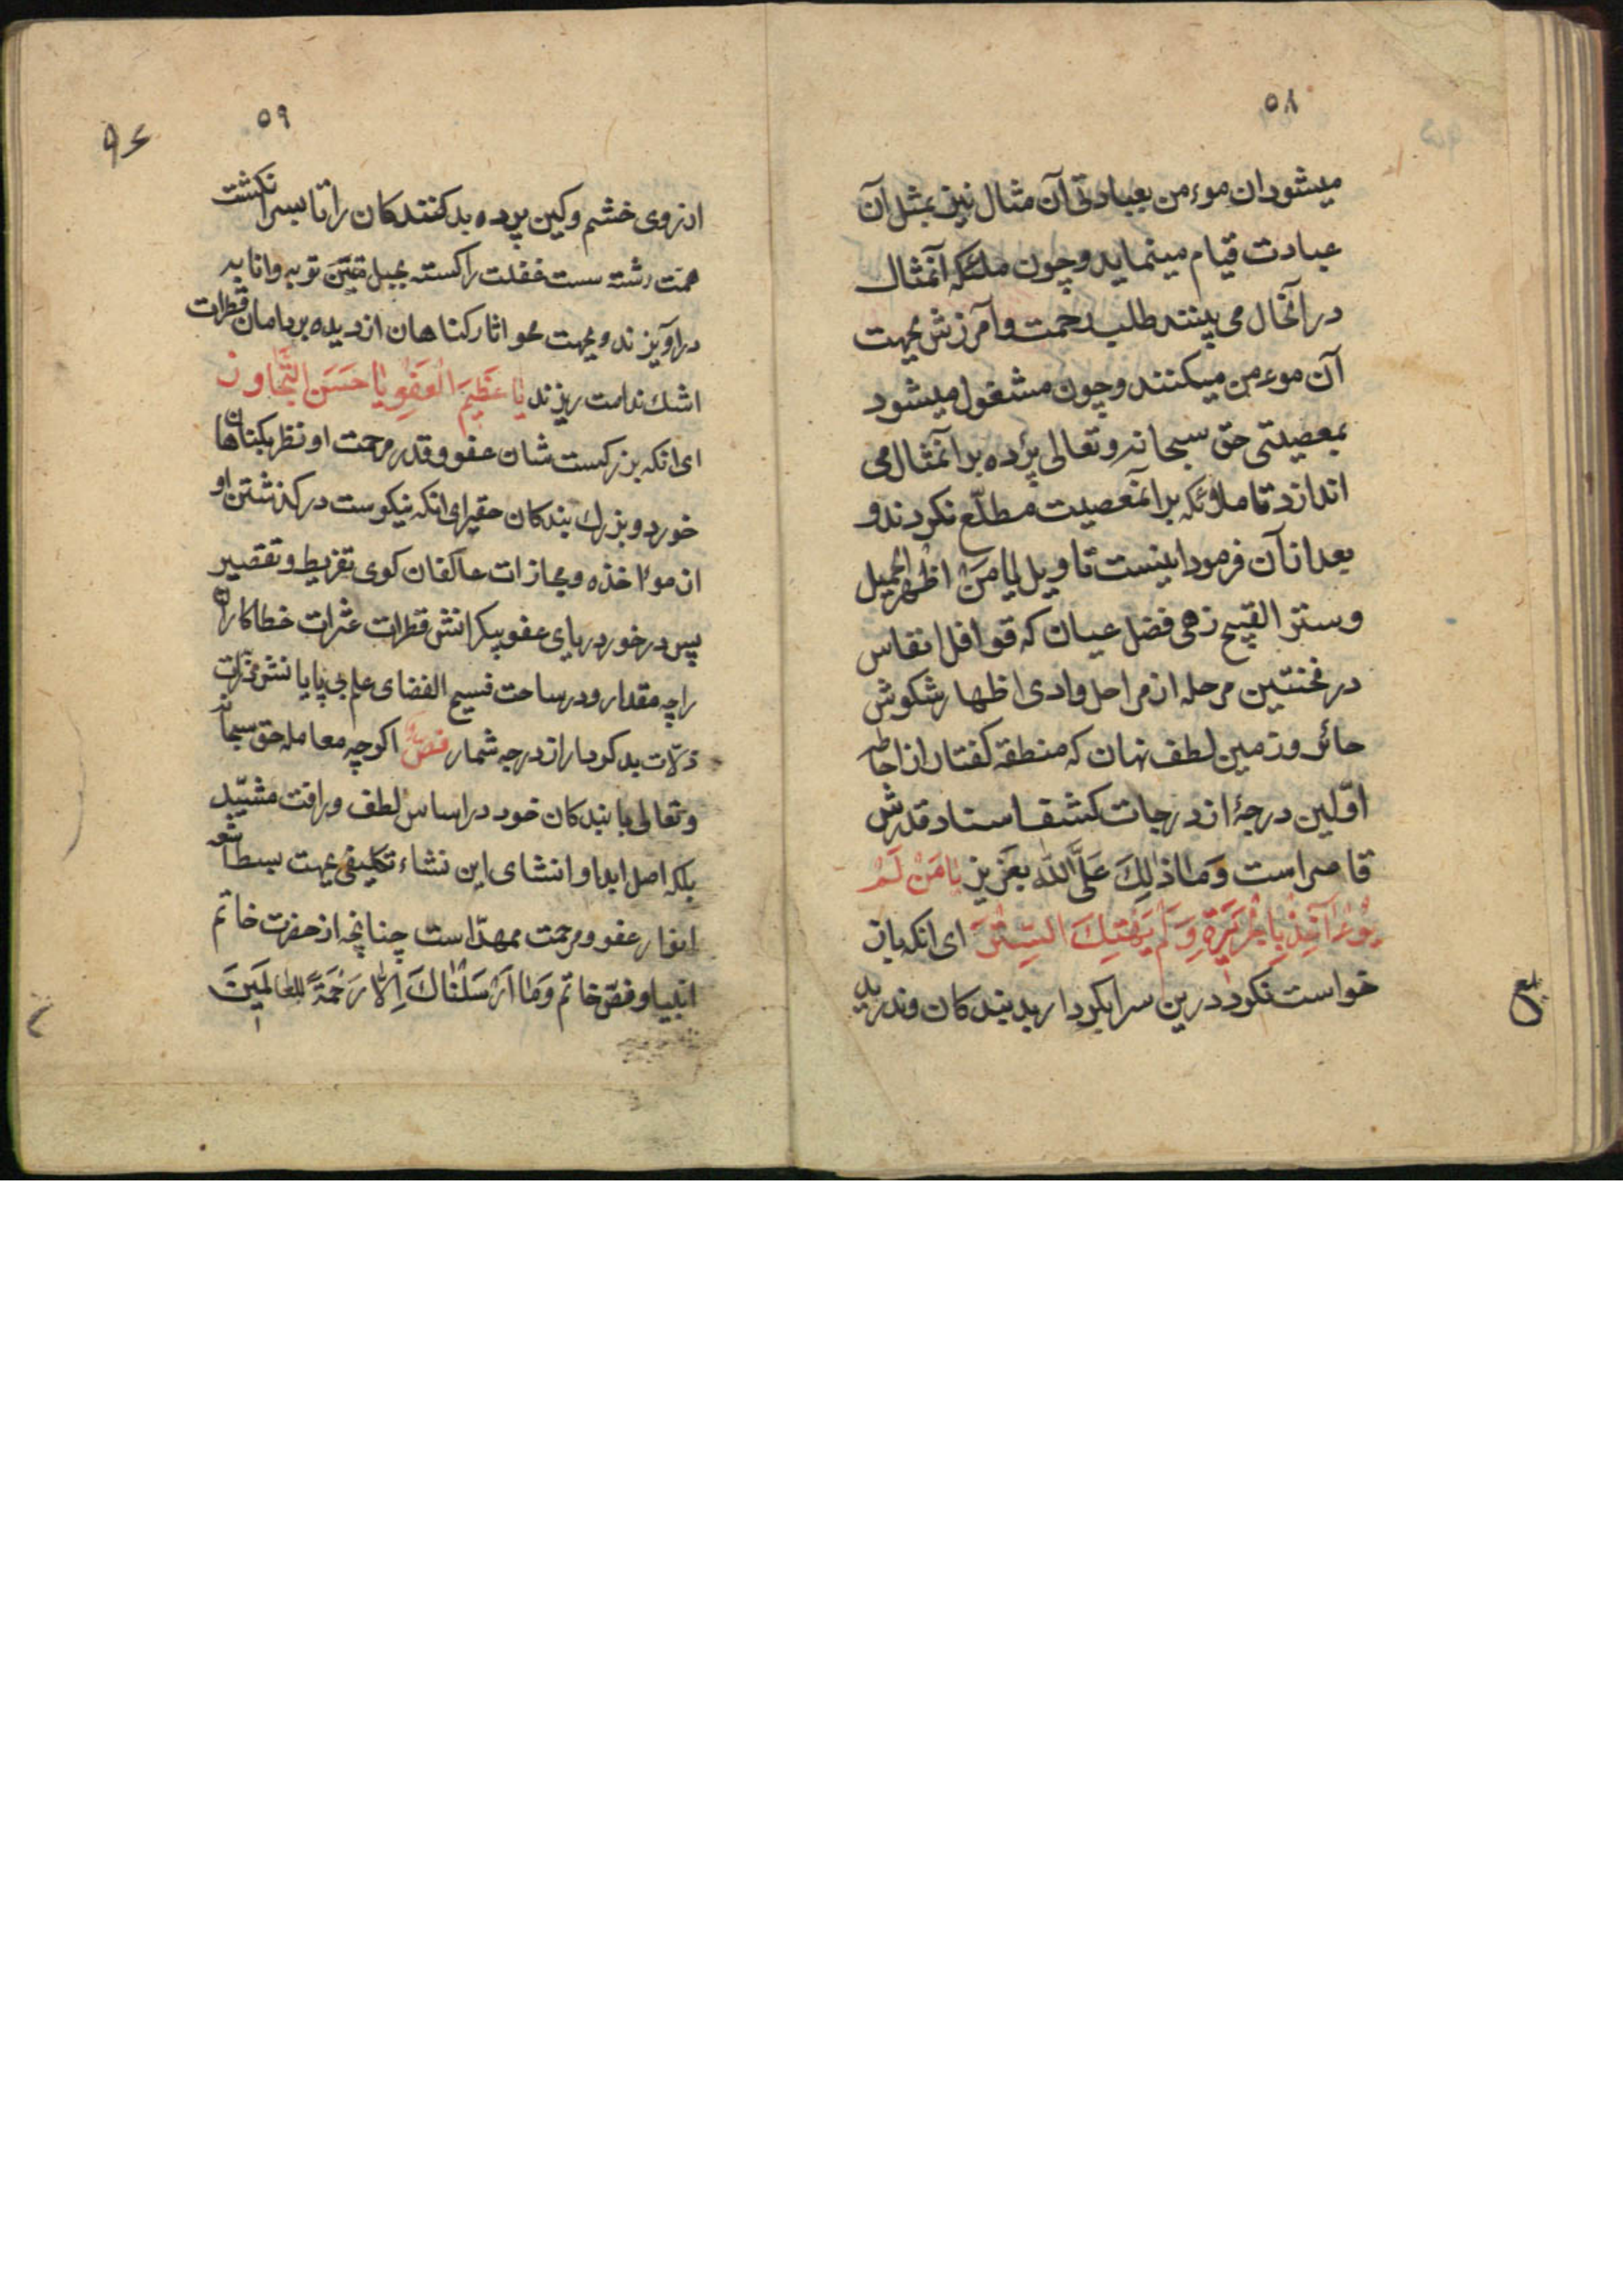 ۵۸
میشود ان موءمن بعبادتی آن مثال نیز بمثل آن
عبادت قیام مینماید و چون ملئکه آنمثال
در آنحال می بینند طلب رحمت و آمرزش بجهت
آن موءمن میکنند و چون مشغول میشود
بمعصیتی حق سبحانه و تعالی پرده بر آنمثال می
اندازد تا ملائکه بر آنمعصیت مطلّع نکردند و
بعد از آن فرمود اینست تاویل یا مَنْ اظْهر الجمیل
و ستر القبیح زهی فضل عیان که قوافل انفاس
در نخستین مرحله از مراحل وادی اظهار شکوش
حائر و زمین لطف نهان که منطقهٔ کفتار از احاطه
اوّلین درجهٔ از درجات کشف استاد قدرش
قاصر است وَمَا ذٰلِكَ عَلَی اللّٰه بِعَزیز یٰا مَنْ لَمْ
یُوءٰاخِذْ بِالجَرِیرَةِ وَلَمْ یَهْتِكَ السِّتْرَ ای انکه باز
خواست نکرد درین سرا بکردار بد بندکان و ندرید
۵۹
از روی خشم و کین پرده بد کنندکان را تا بسر انکشت
همّت رشته سست غفلت را کسته بحبل متین توبه و انابه
در آویزند و بجهت محو اثار کناهان از دیده بر دامان قطرات
اشك ندامت ریزند یٰا عَظِیمَ الْعَفْوِ یٰا حَسَنَ التَّجٰاوز
ای انکه بزرکست شان عفو و قدر مرحمت او نظر بکناهان
خورد و بزرك بندکان حقیر ای انکه نیکوست در کذشتن او
از موٴاخذه و مجازات عاکفان کوی تفریط و تقصیر
پس در خور دریای عفو بیکرانش قطرات عثرات خطاکاران
را چه مقدار و در ساحت فسیح الفضای علم بی پایانش ذرّات
زلّات بد کرداران در چه شمار اکر چه معامله حق سبحانه
و تعالی با بندکان خود در اساس لطف و رافت مشیّد
بلکه اصل ابدا و انشای این نشاء تکلیفی بجهت بسط اشعه
انوار عفو و مرحمت ممهّد است چنانچه از حضرت خاتم
انبیا و فصّ خاتم وَمٰا اَرْسَلْنٰاكَ اِلّٰا رَحْمَةً لِلْعٰالَمِینَ